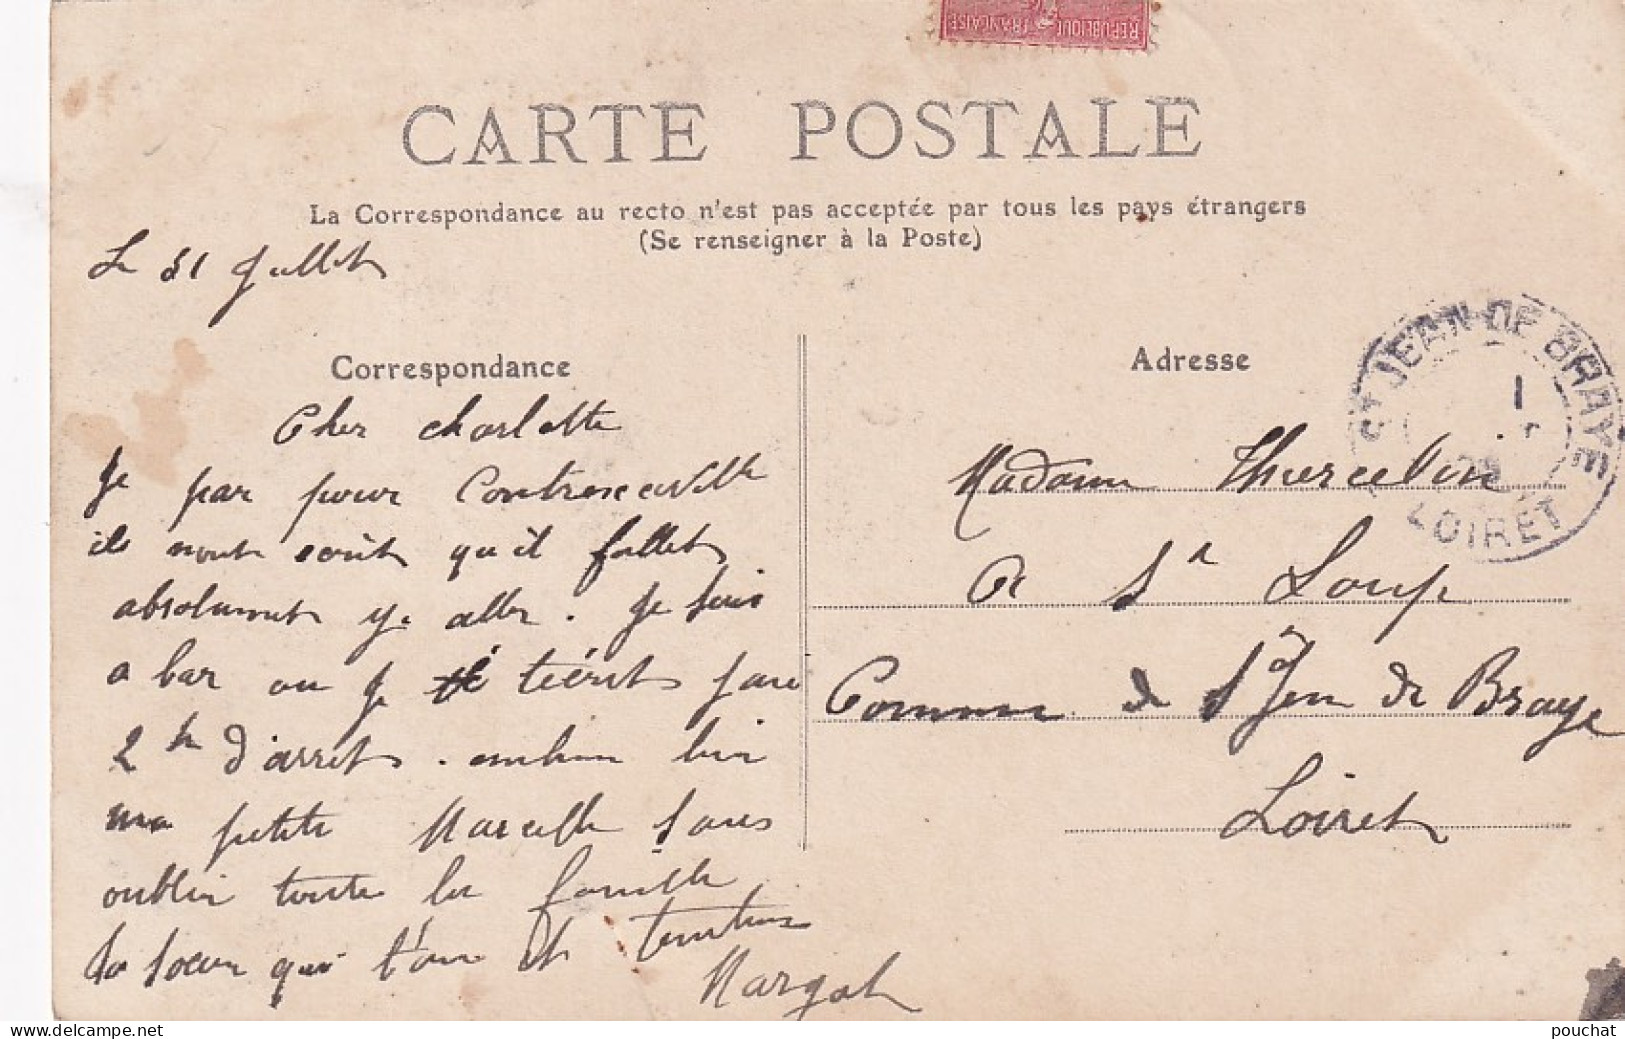 REPUBLIQUE FRANÇAISE
CARTE POSTALE
La Correspondance au recto n'est pas acceptée par tous les pays étrangers
(Se renseigner à la Poste)
Le 31 Juillet
Correspondance
Cher charlotte
Je par pour Contrexeville
ils nous écrit qu'il fallet
absolument y aller. Je suis
a bar ou Je t'écrit jai
2 h d'arret. embrasse bien
ma petite Marcelle sans
oublier toute la famille
ta soeur qui t'aime
Margot
Adresse
Madame Thiercelin
a St Loup
Commune de St Jean de Braye
Loiret
ST JEAN-DE-BRAYE
LOIRET
pouchat